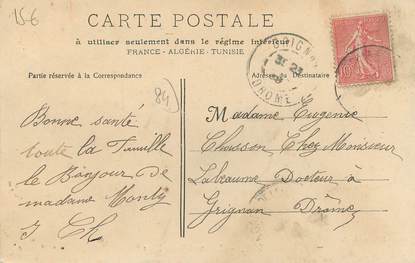 156
CARTE POSTALE
à utiliser seulement dans le régime intérieur
FRANCE - ALGÉRIE - TUNISIE
Partie réservée à la Correspondance
Adresse du Destinataire
84
GRIGNAN
DROME
10
Bonne santé
toute la Famille
le Bonjour de
madame Monty
J Ch
Madame Eugenie
Chosson Chez Monsieur
Labeaume Docteur à
Grignan Drôme